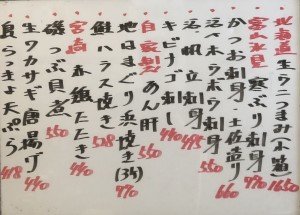 北海道 生ウニつまみ小箱 1650
富山氷見 寒ぶり刺身 970
かつお刺身・土佐造り 660
活ホウボウ刺身 550
活帆立刺し 495
キビナゴ刺し 440
自家製 あん肝 550
地はまぐり浜焼き(3ケ) 970
鮭ハラス焼き 528
宮崎 赤鶏たたき 440
磯つぶ貝煮 550
生ワカサギ唐揚げ 440
島らっきょ天ぷら 418